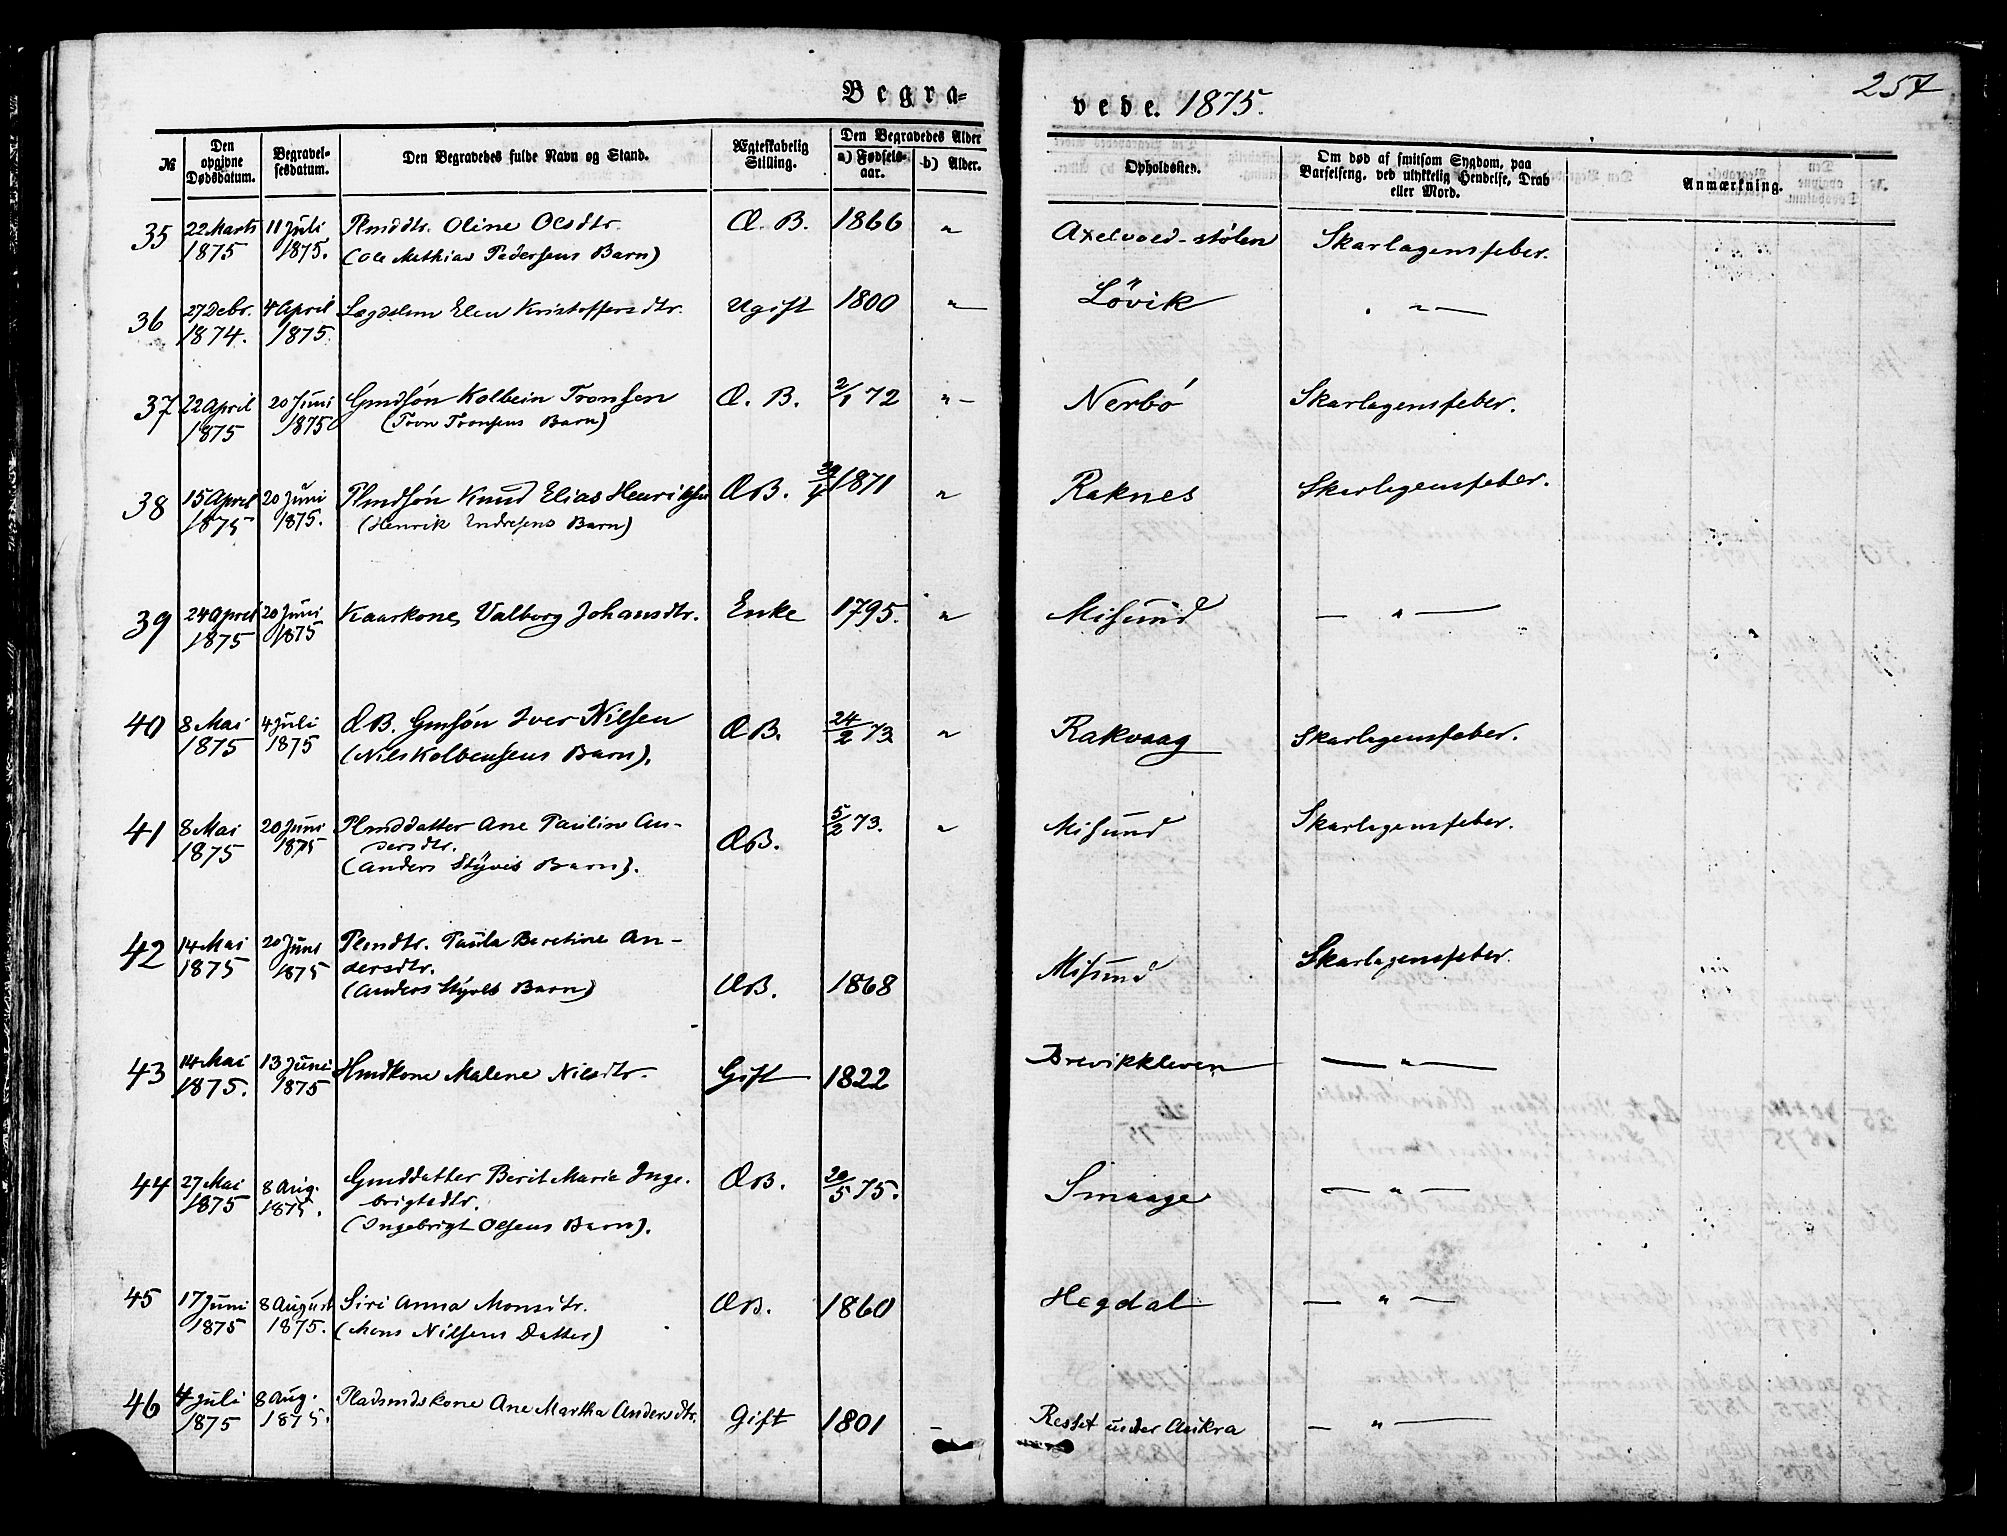 Begra-
vede. 1875.
257
№
Den opgivne Dødsdatum.
Begravelsesdatum.
Den Begravedes fulde Navn og Stand.
Ægteskabelig Stilling.
Den Begravedes Alder
a) Fødselsaar.
b) Alder.
Opholdssted.
Om død af smitsom Sygdom, paa Barselseng, ved ulykkelig Hendelse, Drab eller Mord.
Anmærkning.
35 22 Marts 11 Juli Plmddtr. Oline Olsdtr. Æ. B. 1866 " Axelvold-stølen Skarlagensfeber.
1875 1875. (Ole Mathias Pedersens Barn)
36 27 Debr. 4 April Lægdslem Elen Kristoffersdtr. Ugift 1800 " Lövik "
1874. 1875.
37 22 April 20 Juni Gmdsón Kolbein Tronsen Æ. B. 2/1 72 " Nerbó Skarlagensfeber.
1875 1875 (Tron Tronsens Barn)
38 15 April 20 Juni Plmdsón Knud Elias Henriksen ÆB. 1871 " Raknes Skarlagensfeber.
1875 1875. (Henrik Endresens Barn)
39 24 April 20 Juni Kaarkone Valborg Johansdtr. Enke 1795. " Misund — " —
1875 1875
40 8 Mai 4 Juli Æ B. Gmsón Iver Nilsen ÆB. 24/2 73 " Rakvaag Skarlagensfeber.
1875 1875 (Nils Kolbensens Barn).
41 8 Mai 20 Juni Plmddatter Ane Paulin An-
1875 1875 dersdtr. ÆB. 5/2 73. " Misund Skarlagensfeber.
(Anders Styves Barn).
42 14 Mai 20 Juni Plmdtr. Paula Beretine An-
1875 1875 dersdtr. Misund Skarlagensfeber.
(Anders Styves Barn) ÆB. 1868
43 14 Mai 13 Juni Hmdkone Malene Nilsdtr. Gift 1822 Brevikkleven — " —
1875. 1875
44 27 Mai 8 Aug. Gmddatter Berit Marie Inge-
1875 1875. brigtsdtr. ÆB. 20/5 75. Smaage — " —
(Ingebrigt Olsens Barn).
45 17 Juni 8 August Siri Anna Monsdtr. ÆB. 1860 Hegdal — " —
1875 1875. (Mons Nilsens Datter)
46 4 Juli 8 Aug. Pladsmdskone Ane Martha Andersdtr. Gift 1801 — Resset under Aukra — " —
1875 1875.